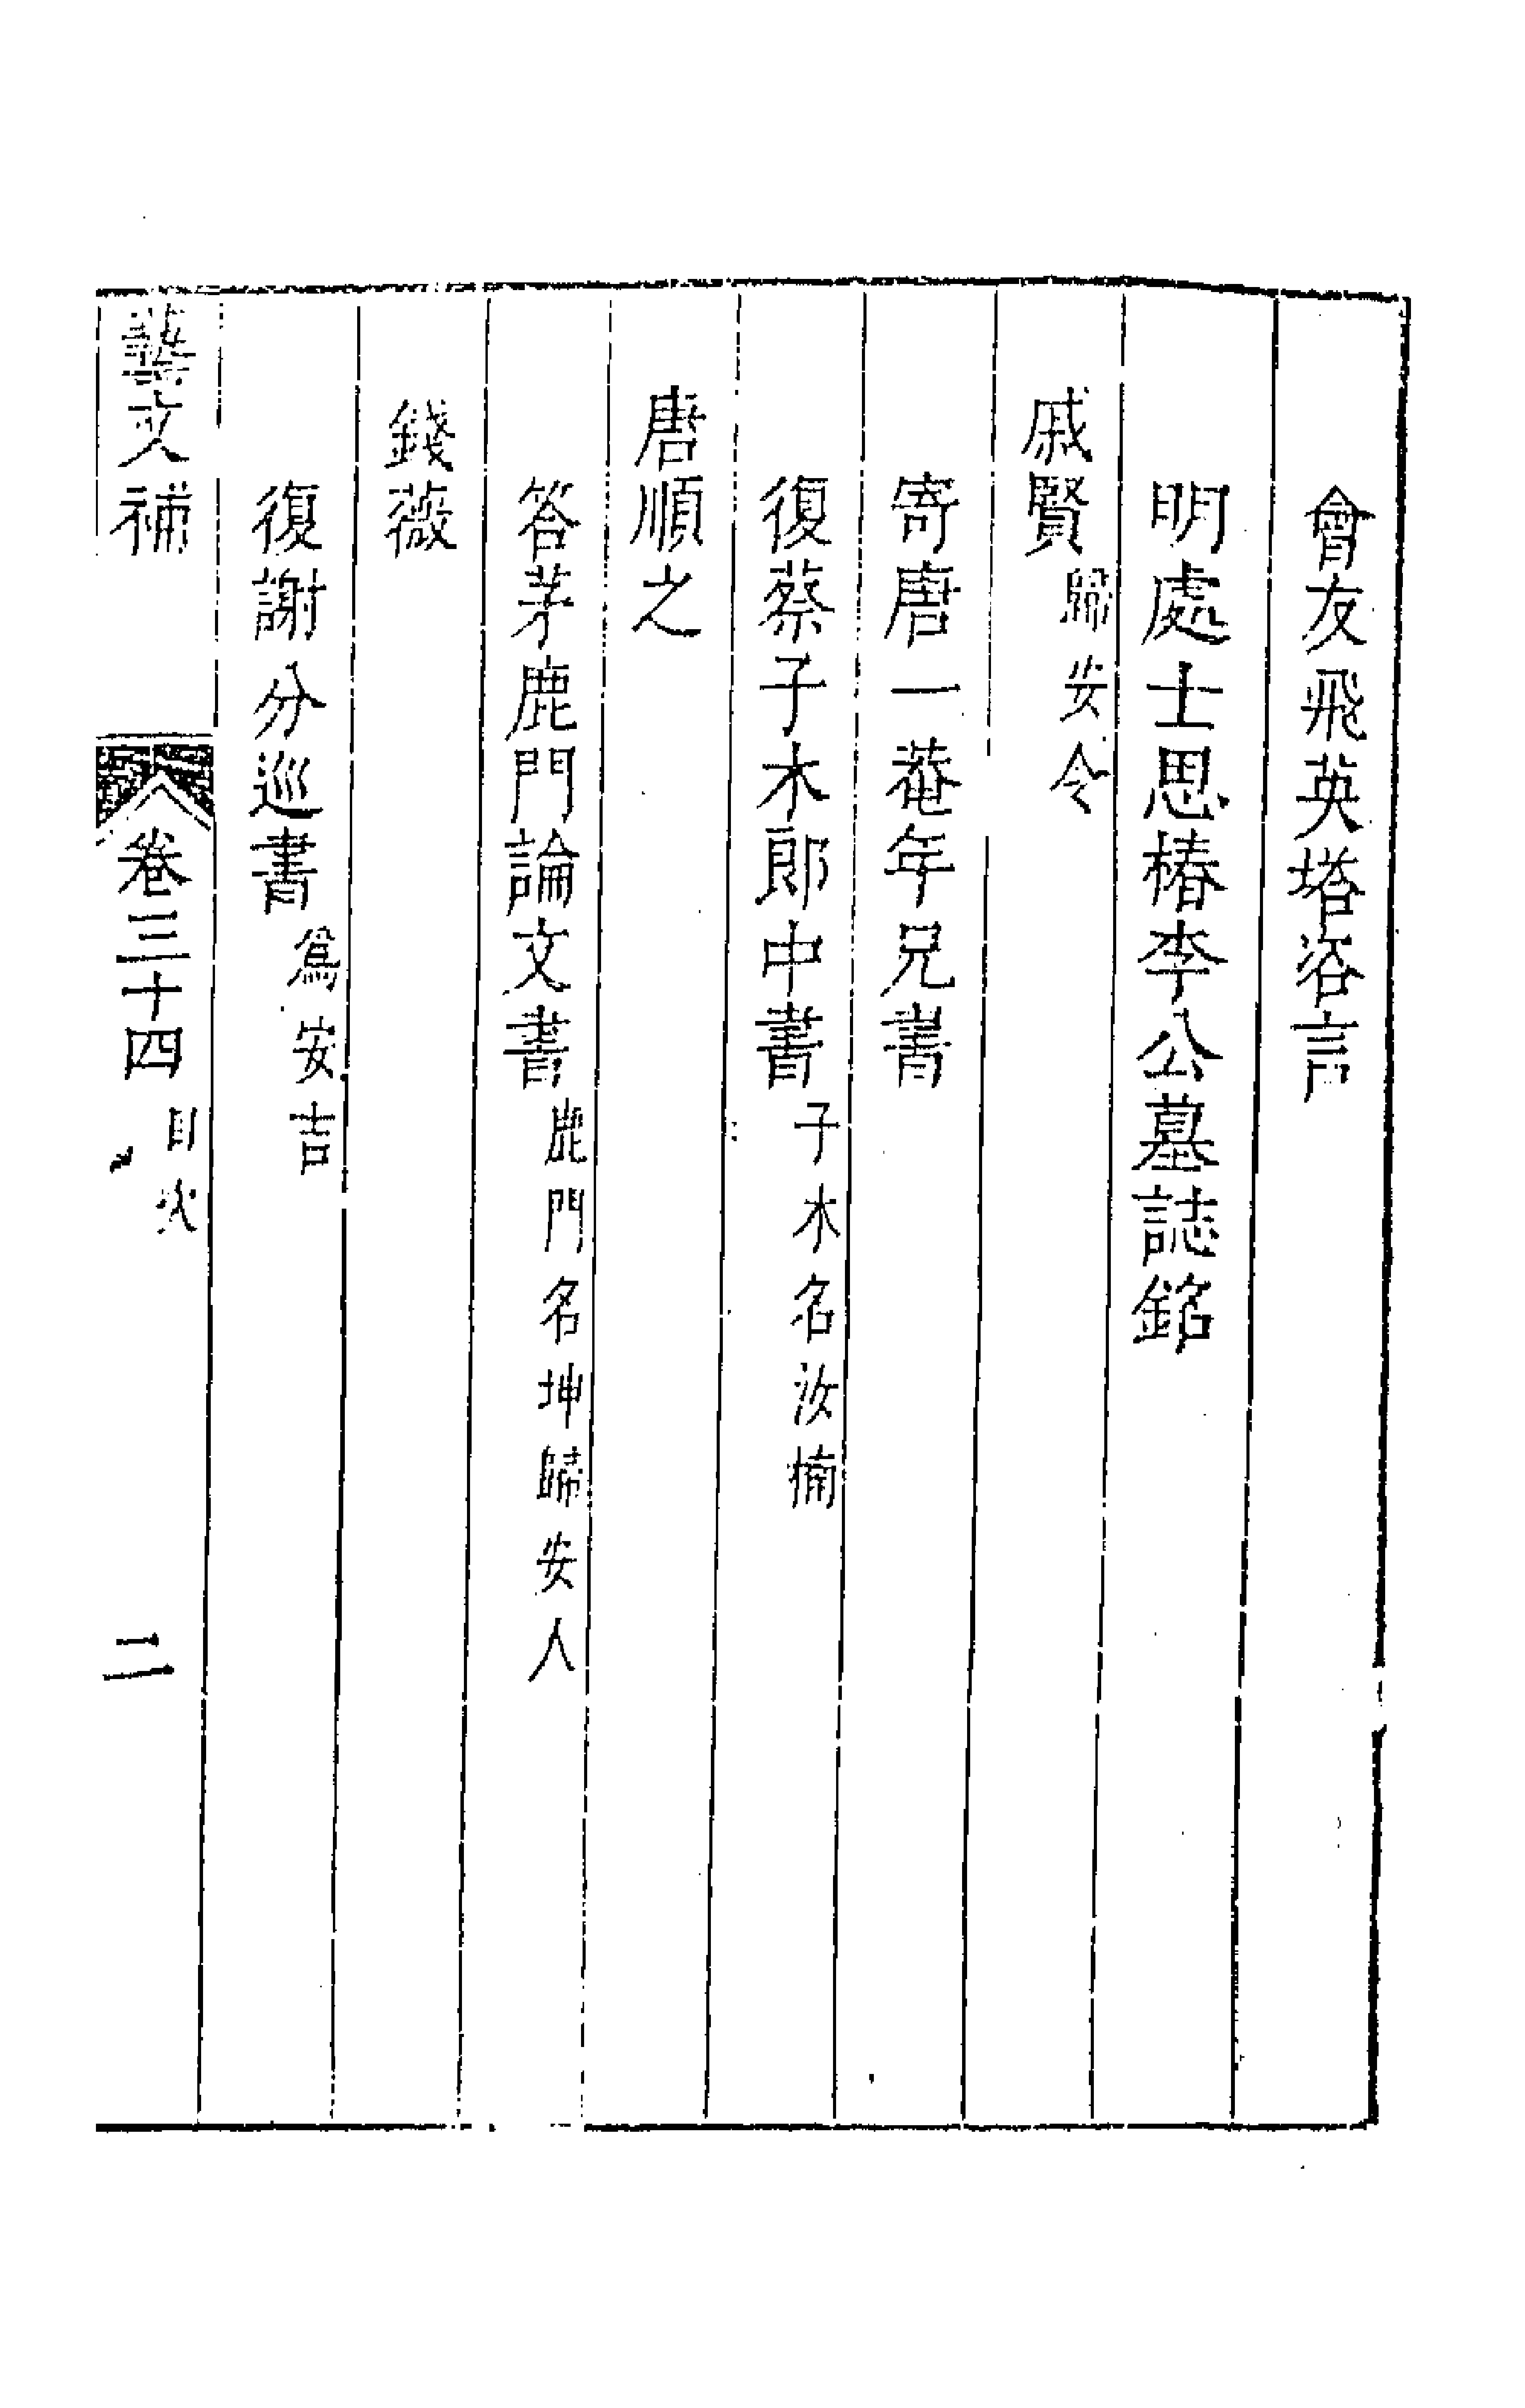 會友飛英塔咨言
明處士思椿李公墓誌銘
戚賢歸安令
寄唐一菴年兄書
復蔡子木郎中書子木名汝楠
唐順之
答茅鹿門論文書鹿門名坤歸安人
錢薇
復謝分巡書為安吉
藝文補 卷三十四 目次 二